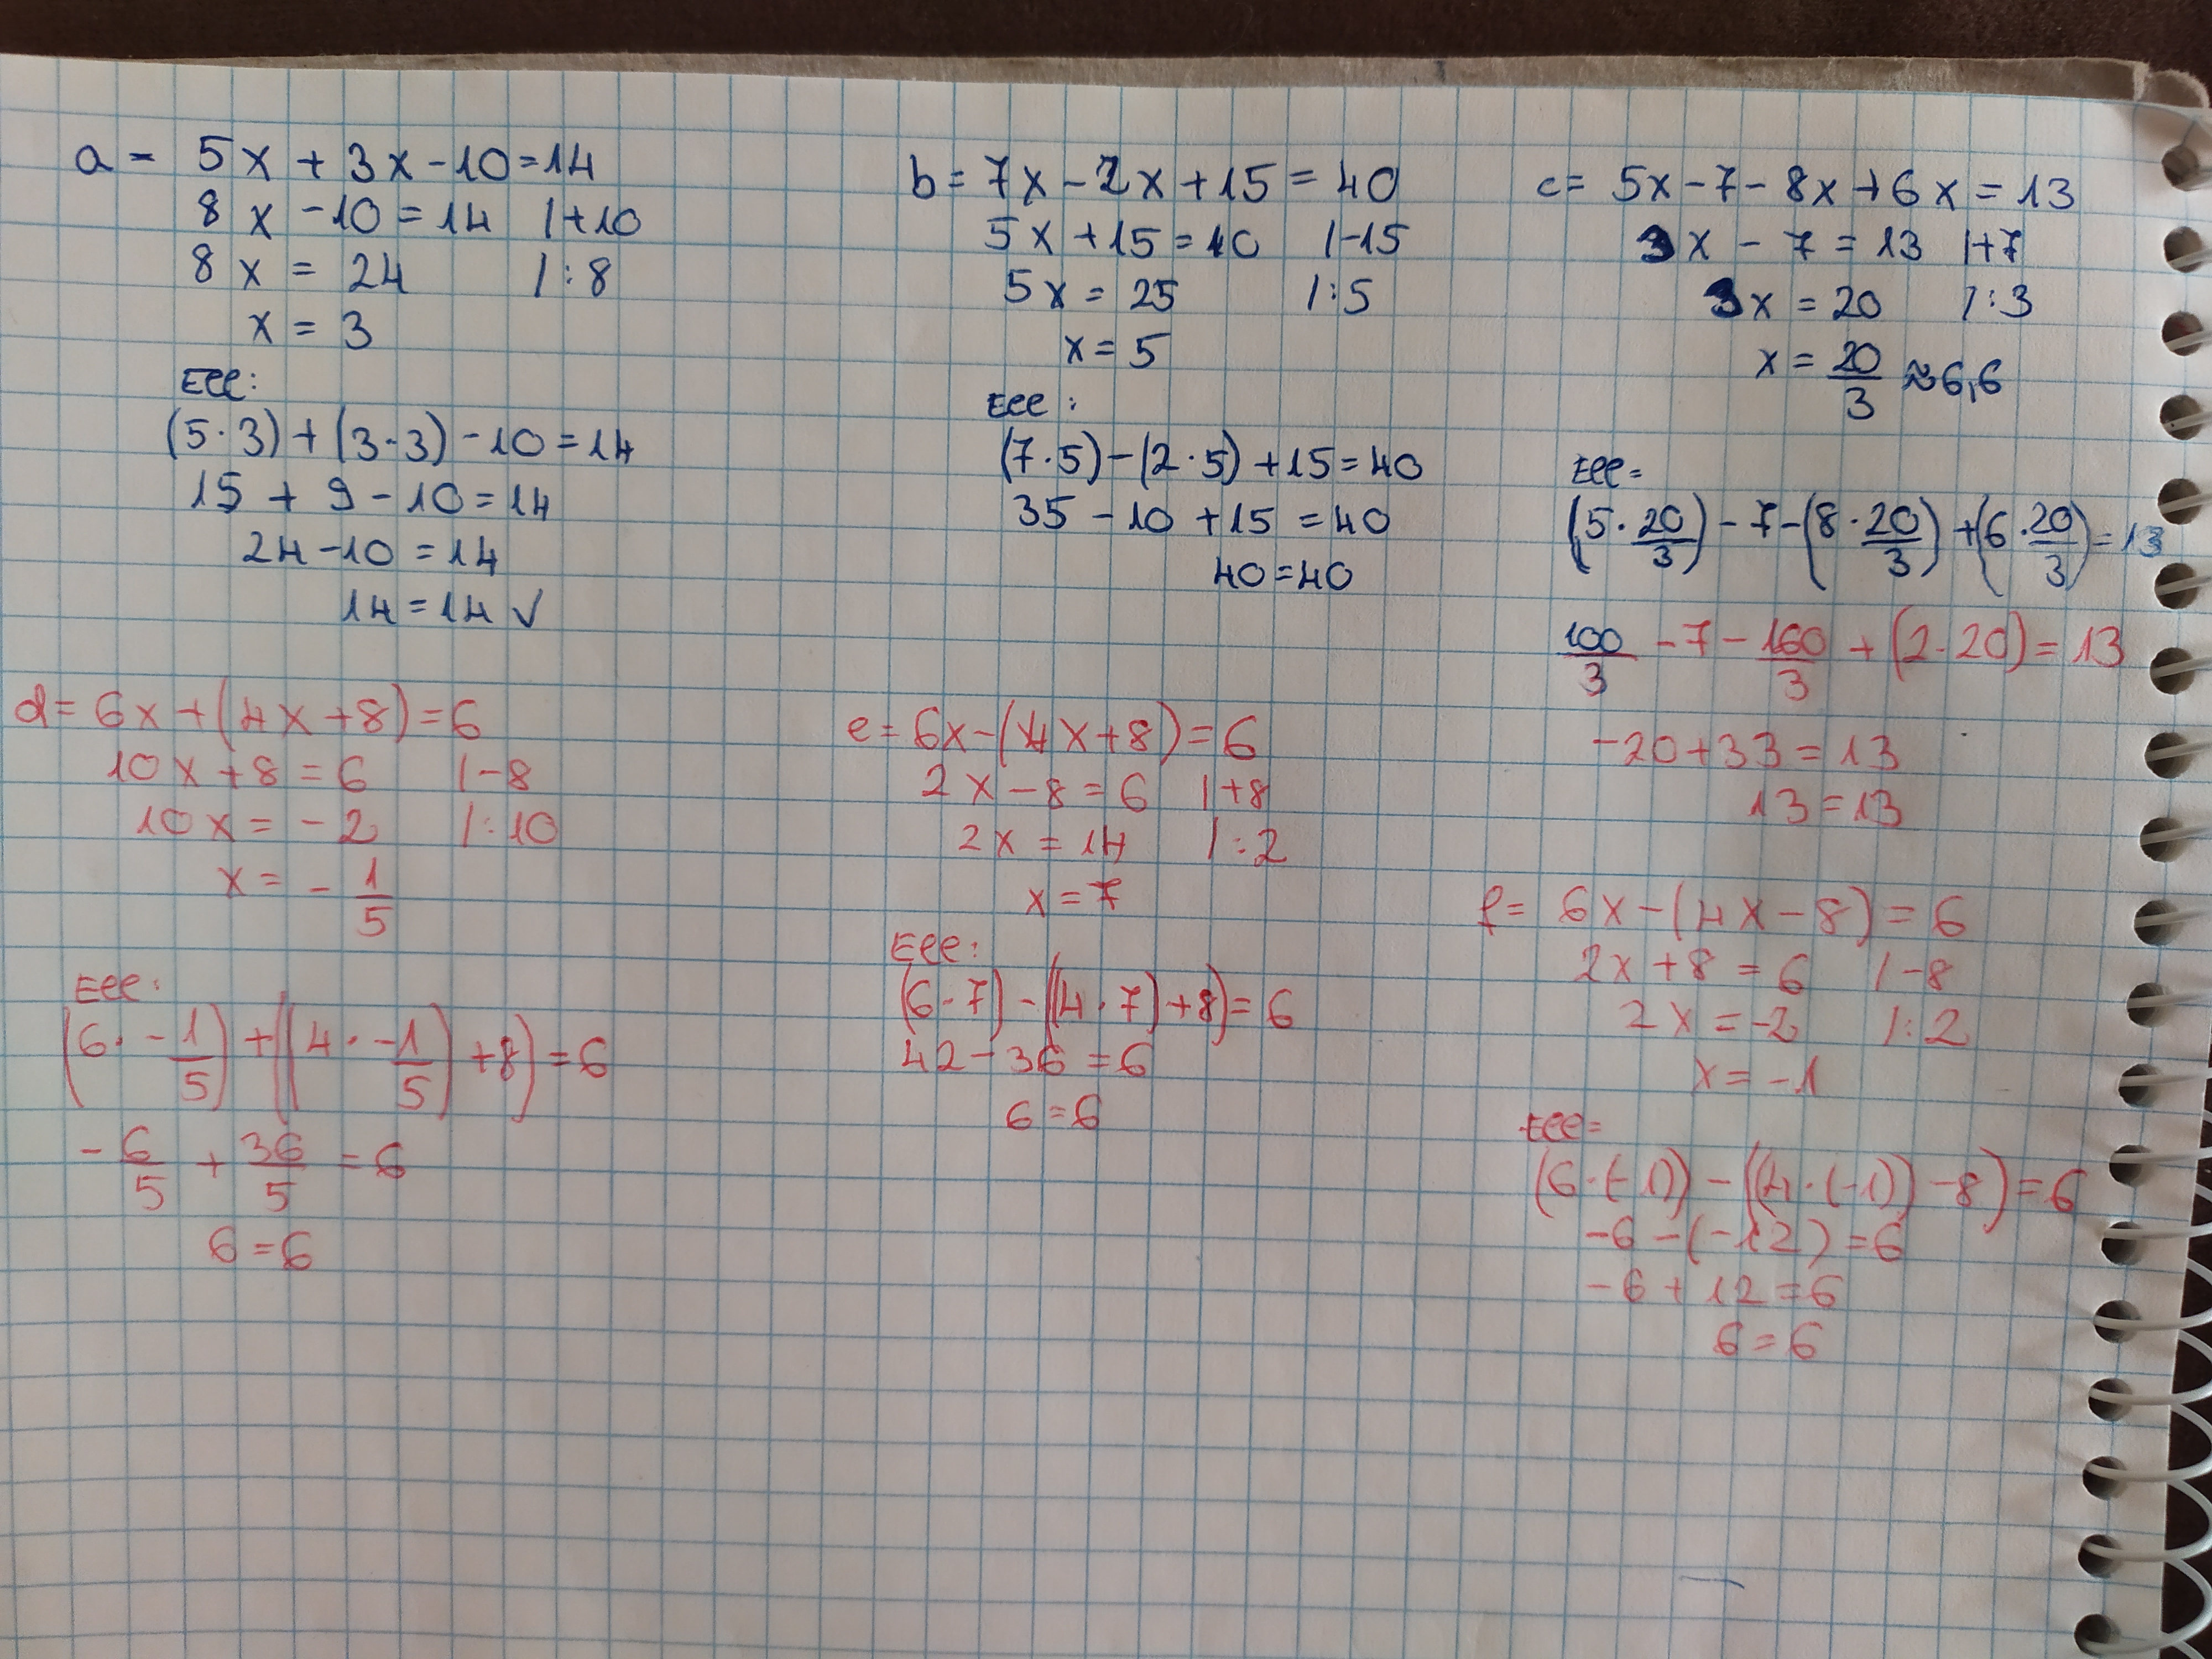 a = 5x + 3x - 10 = 14
8x - 10 = 14 /+10
8x = 24 /:8
x = 3
Ell:
(5·3) + (3·3) - 10 = 14
15 + 9 - 10 = 14
24 - 10 = 14
14 = 14 ✓
b = 7x - 2x + 15 = 40
5x + 15 = 40 /-15
5x = 25 /:5
x = 5
Ell:
(7·5) - (2·5) + 15 = 40
35 - 10 + 15 = 40
40 = 40
c = 5x - 7 - 8x + 6x = 13
3x - 7 = 13 /+7
3x = 20 /:3
x = 20/3 ≈ 6,6
Ell =
(5·20/3) - 7 - (8·20/3) + (6·20/3) = 13
100/3 - 7 - 160/3 + (2·20) = 13
-20 + 33 = 13
13 = 13
d = 6x + (4x + 8) = 6
10x + 8 = 6 /-8
10x = -2 /:10
x = -1/5
Ell:
(6·-1/5) + ((4·-1/5) + 8) = 6
-6/5 + 36/5 = 6
6 = 6
e = 6x - (4x + 8) = 6
2x - 8 = 6 /+8
2x = 14 /:2
x = 7
Ell:
(6·7) - ((4·7) + 8) = 6
42 - 36 = 6
6 = 6
f = 6x - (4x - 8) = 6
2x + 8 = 6 /-8
2x = -2 /:2
x = -1
Ell =
(6·(-1)) - ((4·(-1)) - 8) = 6
-6 - (-12) = 6
-6 + 12 = 6
6 = 6